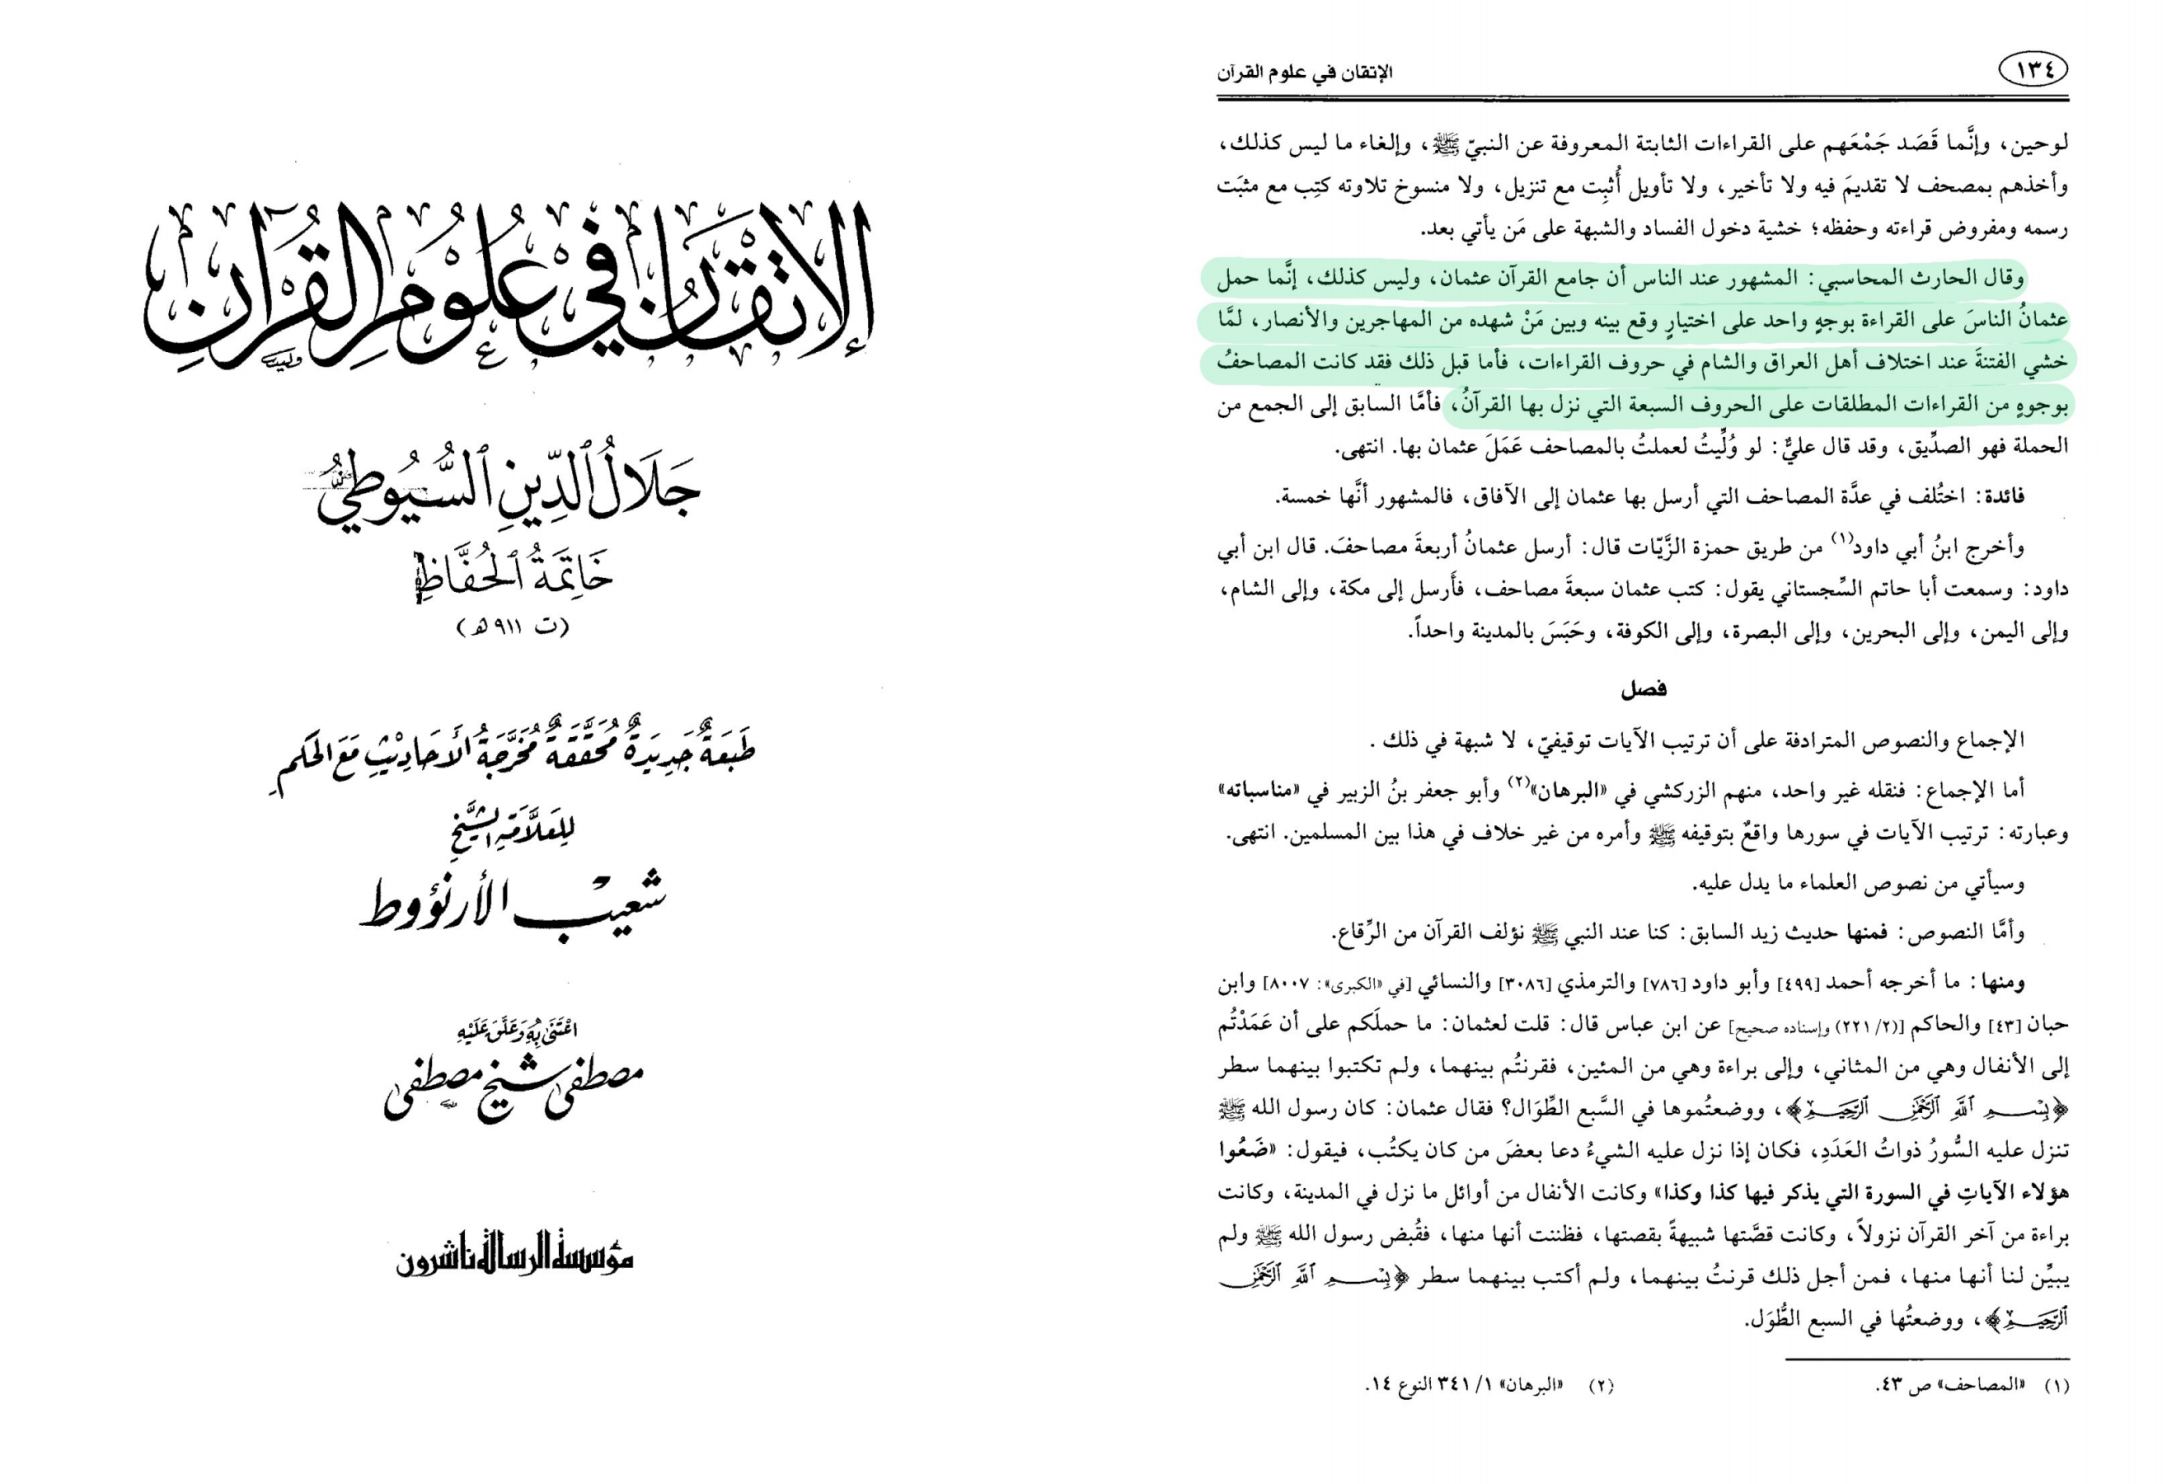 الإتقان في علوم القرآن
جلال الدين السيوطي
خاتمة الحفاظ
(ت ٩١١ هـ)
طبعة جديدة محققة مخرجة الأحاديث مع الحكم
للعلامة الشيخ
شعيب الأرنؤوط
اعتنى به وعلق عليه
مصطفى شيخ مصطفى
مؤسسة الرسالة ناشرون
١٣٤
الإتقان في علوم القرآن
لوحين، وإنَّما قَصَد جَمْعَهم على القراءات الثابتة المعروفة عن النبيّ ﷺ، وإلغاء ما ليس كذلك،
وأخذهم بمصحف لا تقديمَ فيه ولا تأخير، ولا تأويل أُثبِت مع تنزيل، ولا منسوخ تلاوته كتِب مع مثبَت
رسمه ومفروض قراءته وحفظه؛ خشية دخول الفساد والشبهة على مَن يأتي بعد.
وقال الحارث المحاسبي: المشهور عند الناس أن جامع القرآن عثمان، وليس كذلك، إنَّما حمل
عثمانُ الناسَ على القراءة بوجهٍ واحد على اختيارٍ وقع بينه وبين مَنْ شهده من المهاجرين والأنصار، لمَّا
خشي الفتنةَ عند اختلاف أهل العراق والشام في حروف القراءات، فأما قبل ذلك فقد كانت المصاحفُ
بوجوهٍ من القراءات المطلقات على الحروف السبعة التي نزل بها القرآنُ، فأمَّا السابق إلى الجمع من
الحملة فهو الصدِّيق، وقد قال عليٌّ: لو وُلِّيتُ لعملتُ بالمصاحف عَمَلَ عثمان بها. انتهى.
فائدة: اختُلف في عدَّة المصاحف التي أرسل بها عثمان إلى الآفاق، فالمشهور أنَّها خمسة.
وأخرج ابنُ أبي داود(١) من طريق حمزة الزَّيّات قال: أرسل عثمانُ أربعةَ مصاحفَ. قال ابن أبي
داود: وسمعت أبا حاتم السِّجستاني يقول: كتب عثمان سبعةَ مصاحف، فأَرسل إلى مكة، وإلى الشام،
وإلى اليمن، وإلى البحرين، وإلى البصرة، وإلى الكوفة، وحَبَسَ بالمدينة واحداً.
فصل
الإجماع والنصوص المترادفة على أن ترتيب الآيات توقيفيّ، لا شبهة في ذلك.
أما الإجماع: فنقله غير واحد، منهم الزركشي في «البرهان»(٢) وأبو جعفر بنُ الزبير في «مناسباته»
وعبارته: ترتيب الآيات في سورها واقعٌ بتوقيفه ﷺ وأمره من غير خلاف في هذا بين المسلمين. انتهى.
وسيأتي من نصوص العلماء ما يدل عليه.
وأمَّا النصوص: فمنها حديث زيد السابق: كنا عند النبي ﷺ نؤلف القرآن من الرِّقاع.
ومنها: ما أخرجه أحمد [٤٩٩] وأبو داود [٧٨٦] والترمذي [٣٠٨٦] والنسائي [في «الكبرى»: ٨٠٠٧] وابن
حبان [٤٣] والحاكم [(٢/ ٢٢١) وإسناده صحيح] عن ابن عباس قال: قلت لعثمان: ما حملَكم على أن عَمَدْتُم
إلى الأنفال وهي من المثاني، وإلى براءة وهي من المئين، فقرنتُم بينهما، ولم تكتبوا بينهما سطر
﴿بِسْمِ ٱللَّهِ ٱلرَّحْمَٰنِ ٱلرَّحِيمِ﴾، ووضعتُموها في السَّبع الطِّوَال؟ فقال عثمان: كان رسول الله ﷺ
تنزل عليه السُّورُ ذواتُ العَدَدِ، فكان إذا نزل عليه الشيءُ دعا بعضَ من كان يكتُب، فيقول: «ضَعُوا
هؤلاء الآياتِ في السورة التي يذكر فيها كذا وكذا» وكانت الأنفال من أوائل ما نزل في المدينة، وكانت
براءة من آخر القرآن نزولاً، وكانت قصَّتها شبيهةً بقصتها، فظننت أنها منها، فقُبض رسول الله ﷺ ولم
يبيِّن لنا أنها منها، فمن أجل ذلك قرنتُ بينهما، ولم أكتب بينهما سطر ﴿بِسْمِ ٱللَّهِ ٱلرَّحْمَٰنِ
ٱلرَّحِيمِ﴾، ووضعتُها في السبع الطُّوَل.
(١) «المصاحف» ص ٤٣.
(٢) «البرهان» ١/ ٣٤١ النوع ١٤.